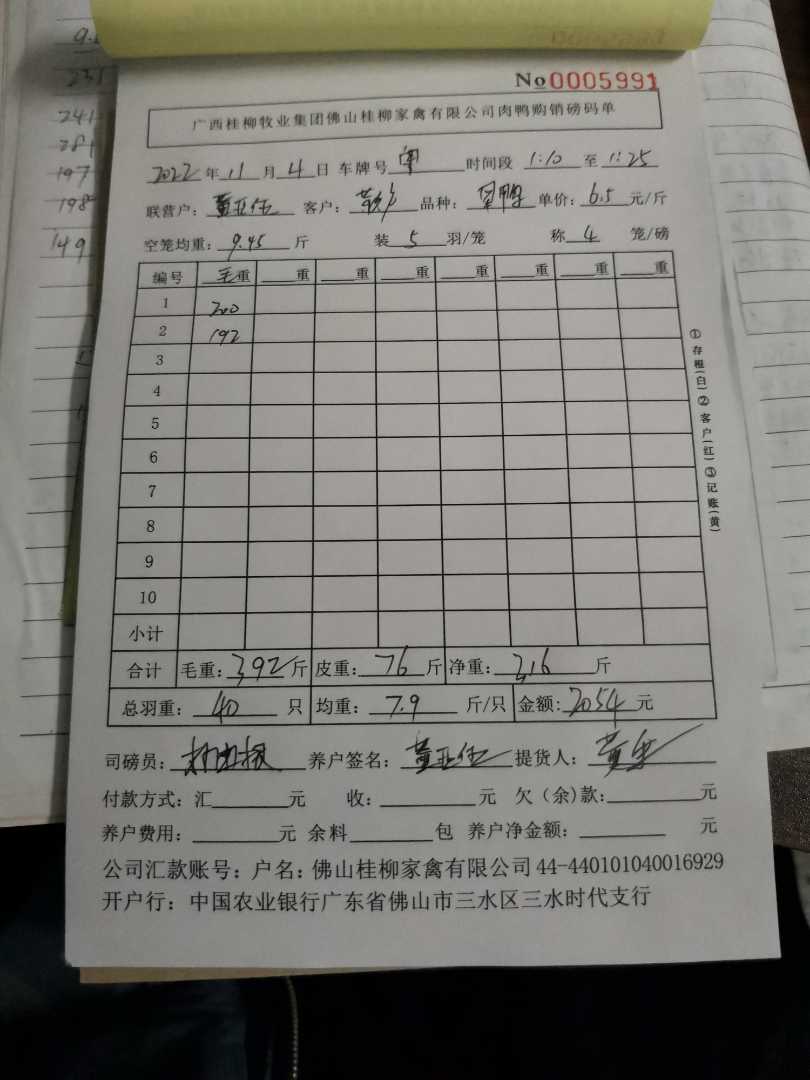 No0005991
广西桂柳牧业集团佛山桂柳家禽有限公司肉鸭购销磅码单
2022年11月4日 车牌号 时间段 1:10 至 1:25
联营户:董亚伍 客户: 品种: 单价:6.5元/斤
空笼均重:9.45斤 装5羽/笼 称4笼/磅
编号 毛重 重 重 重 重 重 重 重
1 200
2 192
3
4
5
6
7
8
9
10
小计
合计 毛重:392斤 皮重:76斤 净重:316斤
总羽重:40只 均重:7.9斤/只 金额:2054元
司磅员: 养户签名:董亚伍 提货人:
付款方式:汇元 收:元 欠(余)款:元
养户费用:元 余料包 养户净金额:元
公司汇款账号:户名:佛山桂柳家禽有限公司44-440101040016929
开户行:中国农业银行广东省佛山市三水区三水时代支行
①存根(白)②客户(红)③记账(黄)
231
241
281
197
198
149